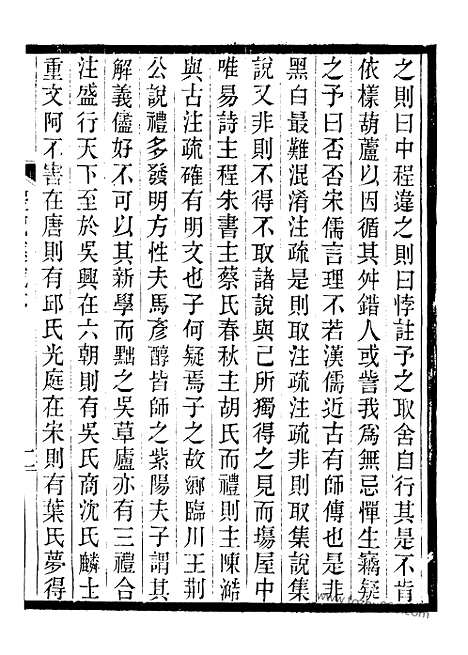 之則曰中程違之則曰悖註予之取舍自行其是不肯
依樣葫蘆以因循其舛錯人或訾我爲無忌憚生竊疑
之予曰否否宋儒言理不若漢儒近古有師傳也是非
黑白最難混淆注疏是則取注疏注疏非則取集說集
說又非則不得不取諸說與己所獨得之見而塲屋中
唯易詩主程朱書主蔡氏春秋主胡氏而禮則主陳澔
與古注疏確有明文也子何疑焉子之故鄉臨川王荆
公說禮多發明方性夫馬彥醇皆師之紫陽夫子謂其
解義儘好不可以其新學而黜之吳草廬亦有三禮合
注盛行天下至於吳興在六朝則有吳氏商沈氏麟士
重文阿不害在唐則有邱氏光庭在宋則有葉氏夢得